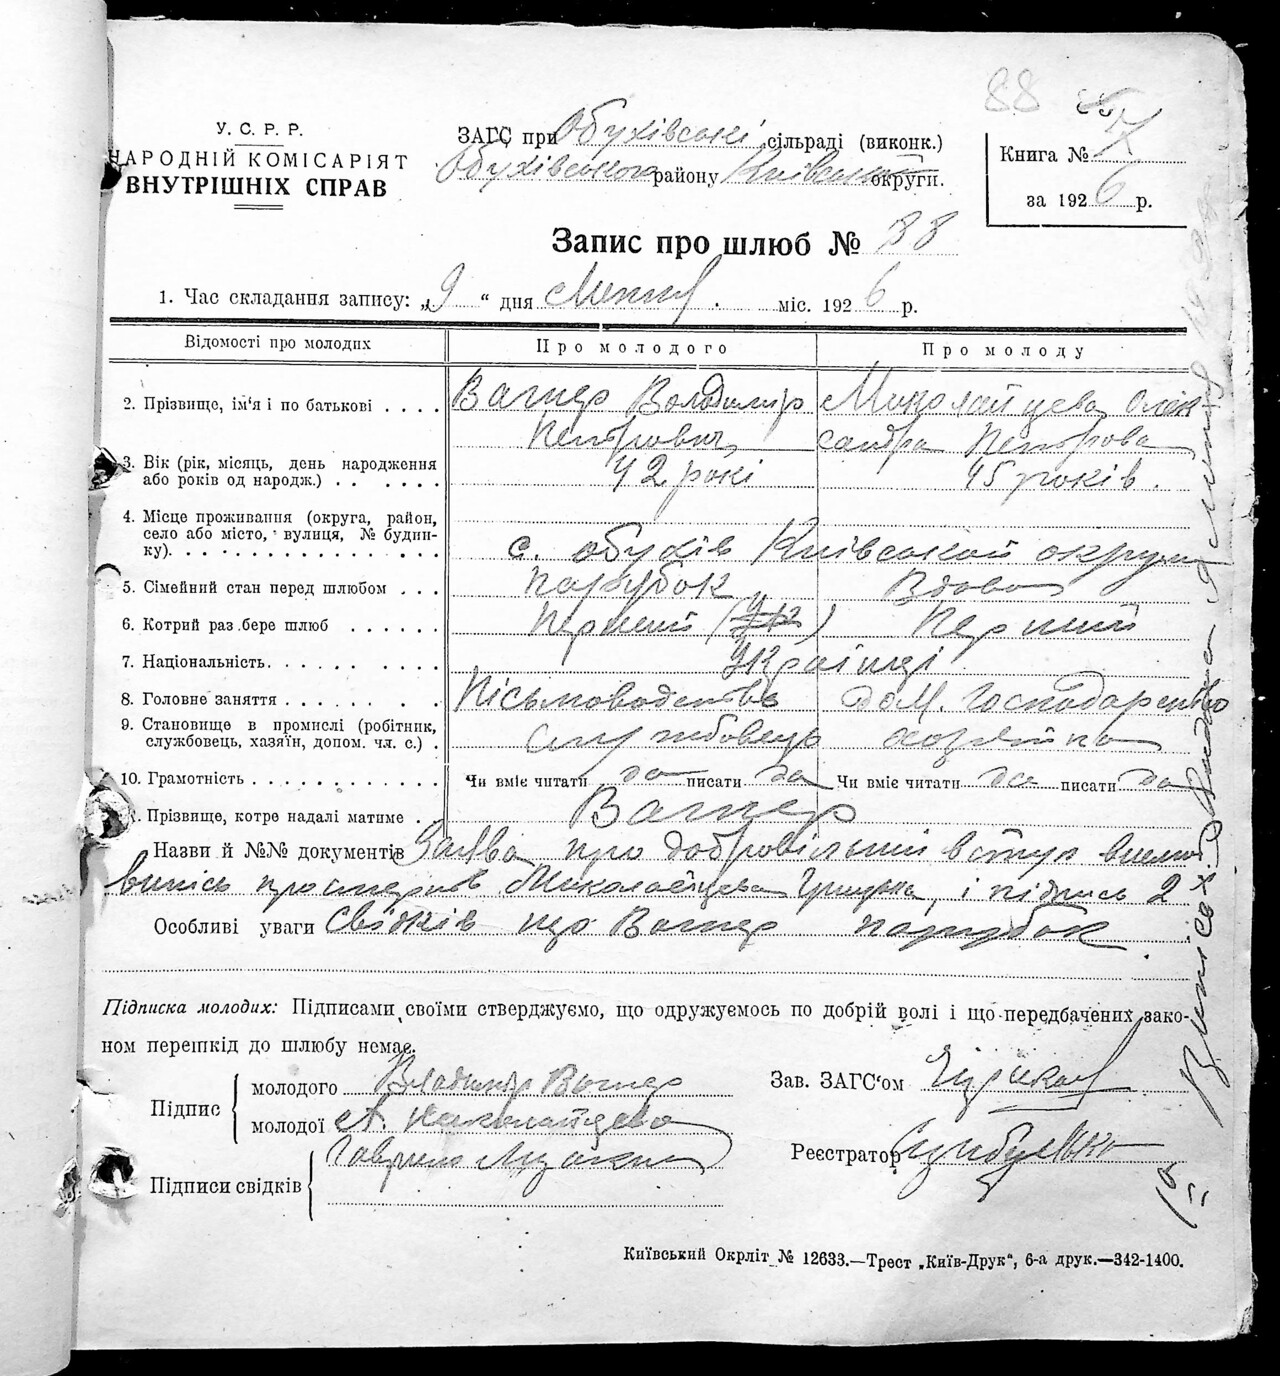 88
7
У. С. Р. Р.
НАРОДНІЙ КОМІСАРІЯТ
ВНУТРІШНІХ СПРАВ
ЗАГС при Обухівські сільраді (виконк.)
Обухівського району Київської округи.
Книга № 7
за 1926 р.
Запис про шлюб № 88
1. Час складання запису: „9“ дня Липня міс. 1926 р.
Відомості про молодих Про молодого Про молоду
2. Прізвище, ім‘я і по батькові . . . . Вагнер Володимир Миколайцева Олек
Петрович сандра Петрова
3. Вік (рік, місяць, день народження
або років од народж.) 42 рокі 45 років.
4. Місце проживання (округа, район,
село або місто, вулиця, № будин-
ку). с. Обухів Київської округи
5. Сімейний стан перед шлюбом . . . Парубок Вдова
6. Котрий раз бере шлюб Перший Перший
7. Національність. Українці
8. Головне заняття Пісьмоводство дом. господарство
9. Становище в промислі (робітник,
службовець, хазяїн, допом. чл. с.) . службовець хозяйка
10. Грамотність Чи вміє читати да писати да Чи вміє читати да писати да
11. Прізвище, котре надалі матиме . . Вагнер
Назви й №№ документів Заява про добровільний вступ
випись про смерть Миколайцева і підпись 2
Особливі уваги свідків що Вагнер парубок
Підписка молодих: Підписами своїми стверджуємо, що одружуємось по добрій волі і що передбачених зако-
ном перешкід до шлюбу немає.
Підпис
молодого Владимір Вагнер
молодої А. Николайцева
Підписи свідків Гаврило
Зав. ЗАГС‘ом
Реєстратор
Випись видана
Київський Окрліт № 12633.—Трест „Київ-Друк“, 6-а друк.—342-1400.